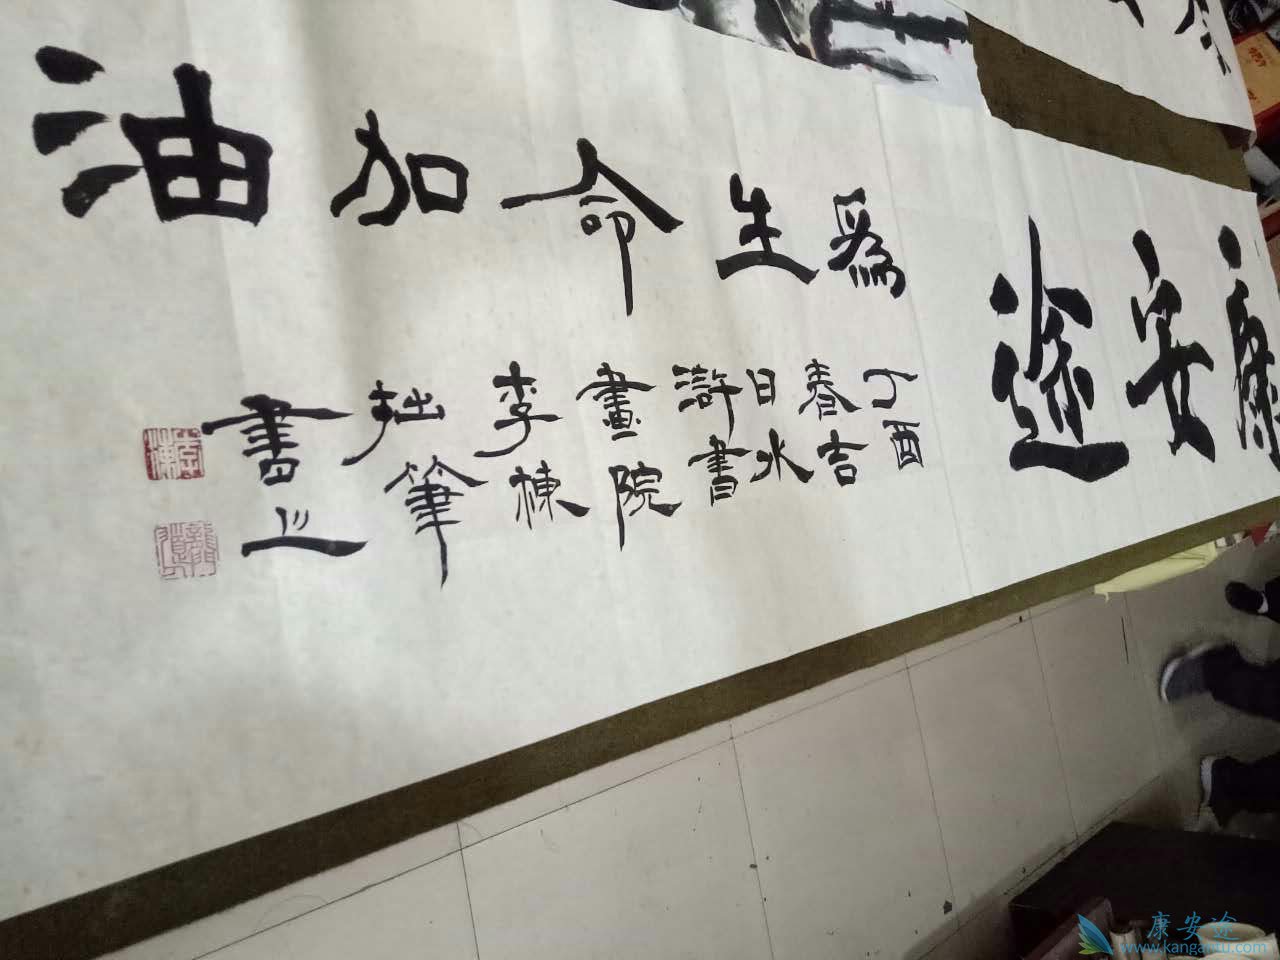 康安途
為生命加油
丁酉
春吉
日水
滸書
畫院
李棟
拙筆
書之
李棟
康安途
www.kangantu.com